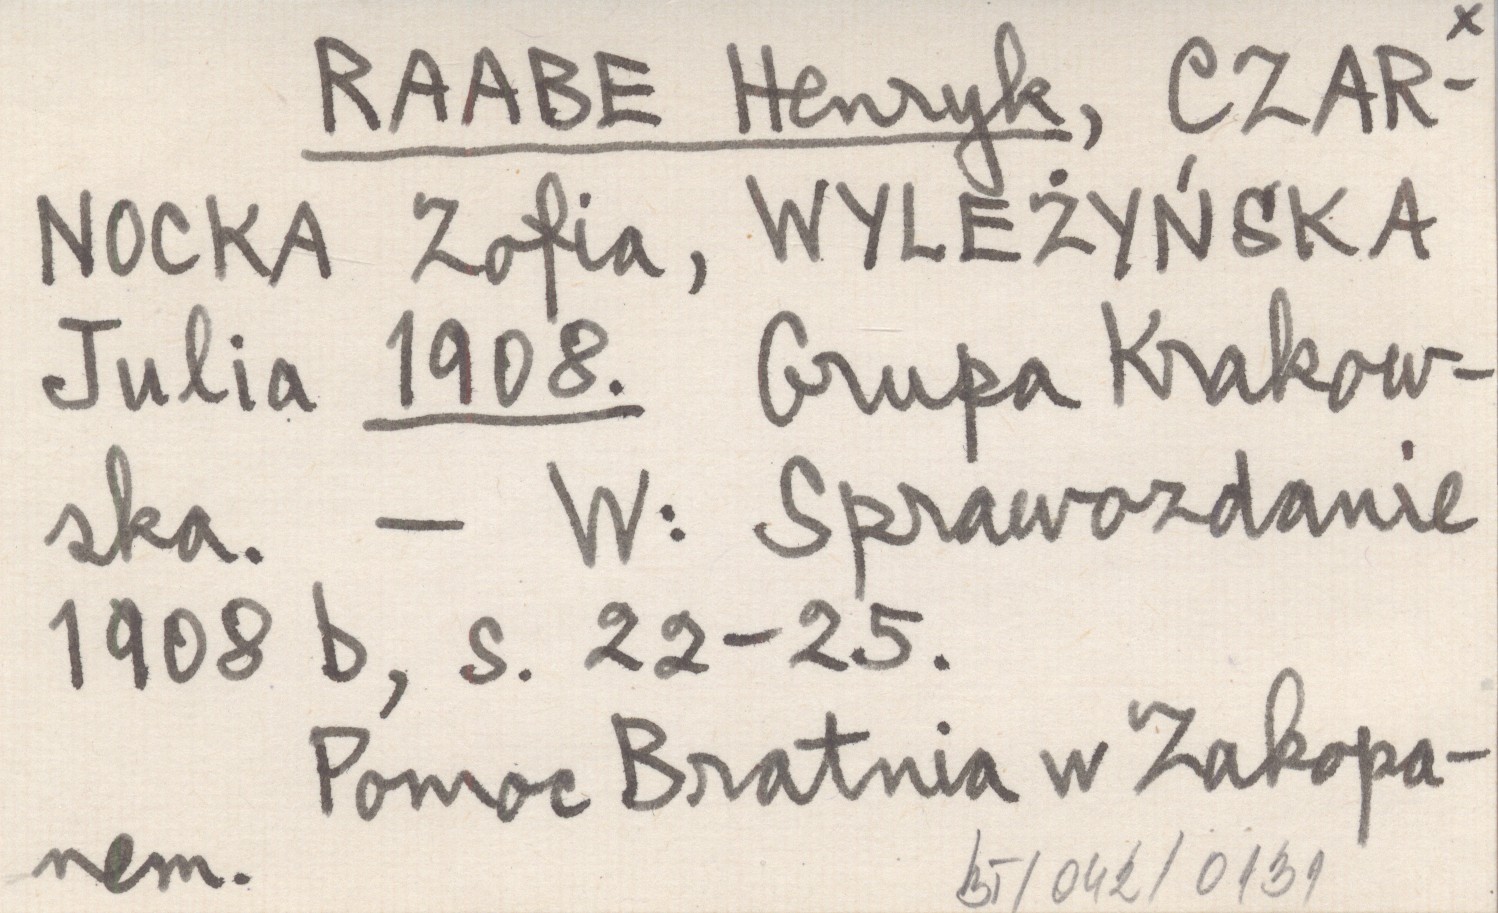 x
RAABE Henryk, CZAR-
NOCKA Zofia, WYLEŻYŃSKA
Julia 1908. Grupa Krakow-
ska. — W: Sprawozdanie
1908 b, s. 22-25.
Pomoc Bratnia w Zakopa-
nem.
BT/042/0131